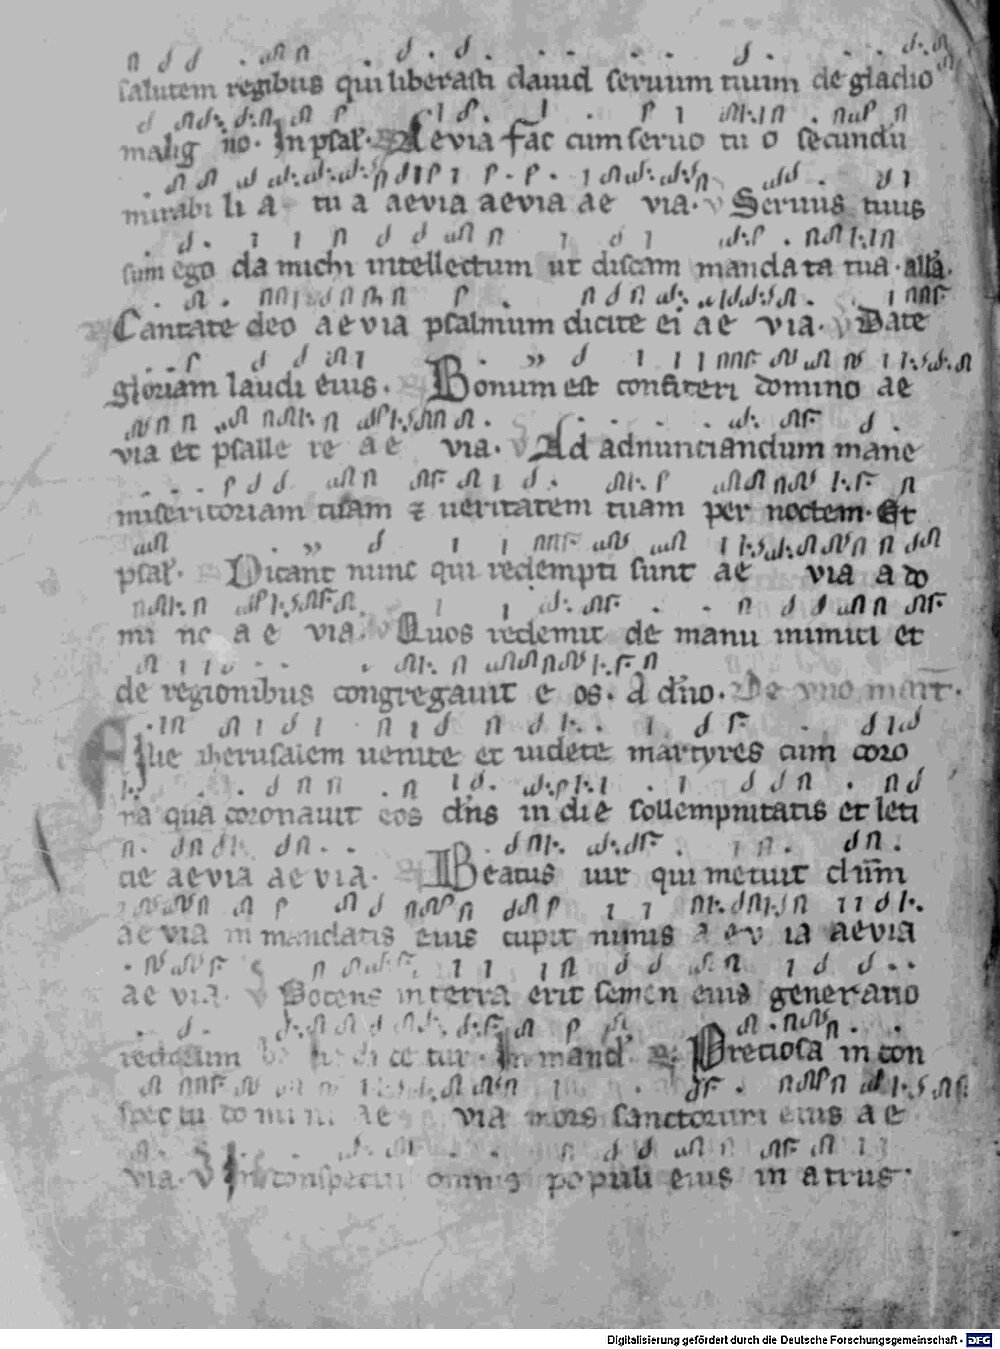 salutem regibus qui liberasti dauid seruum tuum de gladio
malig no. In psal. Aevia fac cum seruo tu o secundu
mirabi li a tu a aevia aevia ae via. V Seruus tuus
sum ego da michi intellectum ut discam mandata tua. alla.
Cantate deo aevia psalmum dicite ei ae via. V Date
gloriam laudi eius. Bonum est confiteri domino ae
via et psalle re ae via. V Ad adnunciandum mane
misericoriam tuam ⁊ ueritatem tuam per noctem. Et
psal. Dicant nunc qui redempti sunt ae via a do
mi no ae via. V Quos redemit de manu inimici et
de regionibus congregauit e os. A dno. De vno mart.
Filie iherusalem uenite et uidete martyres cum coro
na qua coronauit eos dns in die sollempnitatis et leti
cie aevia aevia. Beatus uir qui metuit dnm
ae via in mandatis eius cupit nimis a e v ia aevia
ae via. V Potens in terra erit semen eius generatio
rectorum be ne di ce tur. In mand. Preciosa in con
spectu do mi ni ae via mors sanctorum eius ae
via. V In conspectu omnis populi eius in atriis.
Digitalisierung gefördert durch die Deutsche Forschungsgemeinschaft - DFG